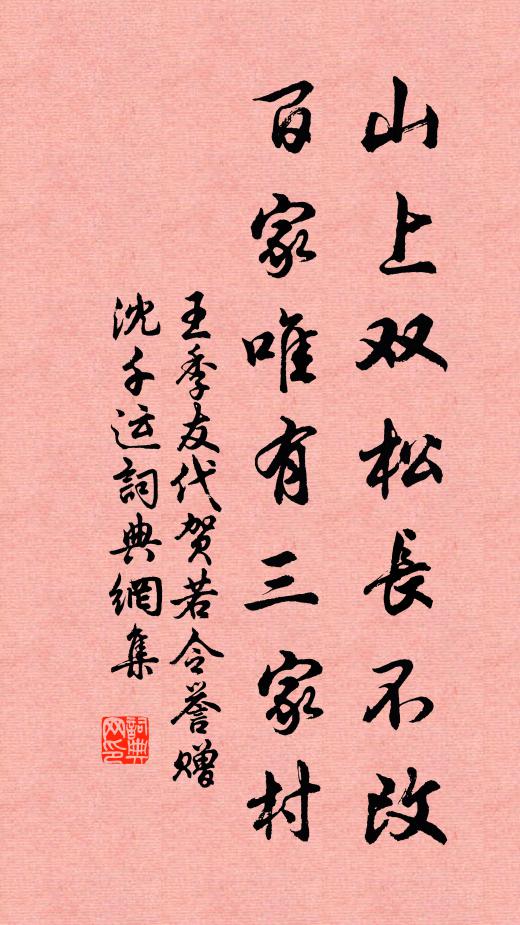 山上双松長不改
百家唯有三家村
王季友代贺若令誉赠
沈千运詞典網集
詞典网印